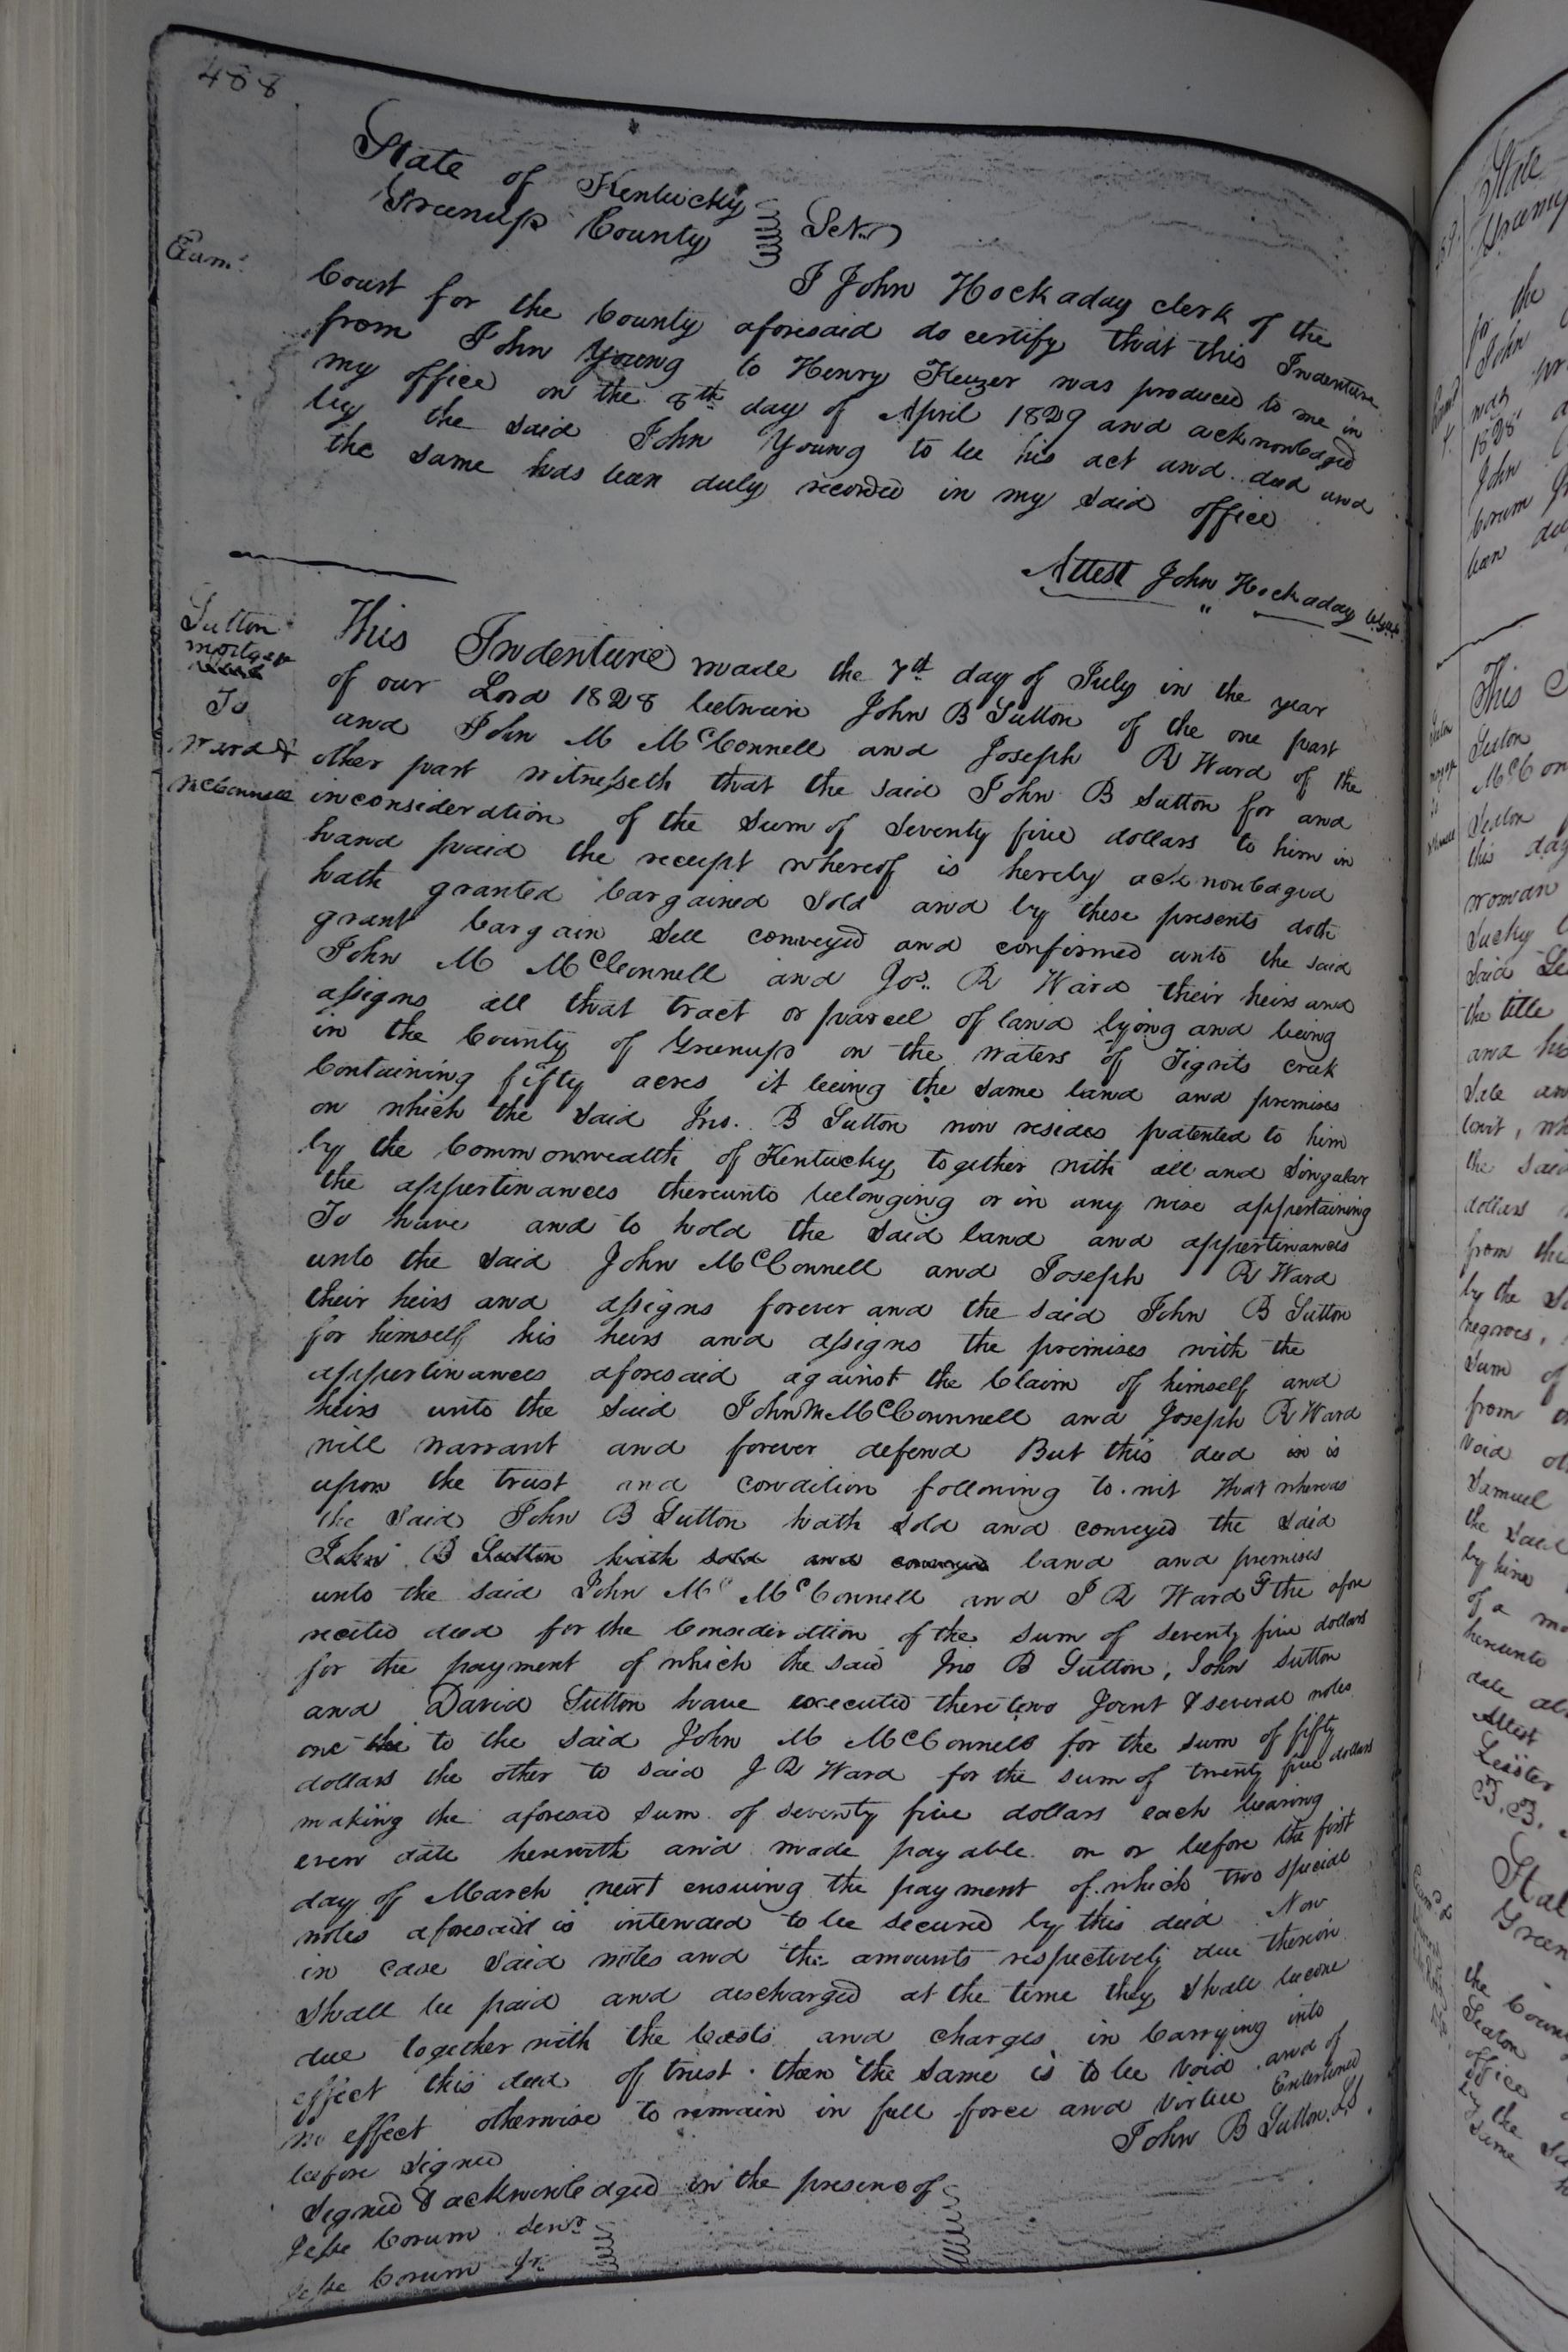 488
State of Kentucky
Greenup County Sct.
Exam.
I John Hockaday clerk of the
Court for the County aforesaid do certify that this Indenture
from John Young to Henry Heuzer was produced to me in
my office on the 8th day of April 1829 and acknowledged
by the said John Young to be his act and deed and
the same has been duly recorded in my said office
Attest John Hockaday
Sutton
mortgage
To
Ward &
McConnell
This Indenture made the 7th day of July in the year
of our Lord 1828 between John B Sutton of the one part
and John M McConnell and Joseph R Ward of the
other part witnesseth that the said John B Sutton for and
inconsideration of the sum of seventy five dollars to him in
hand paid the receipt whereof is hereby acknowledged
hath granted bargained sold and by these presents doth
grant bargain sell conveyed and confirmed unto the said
John M McConnell and Jos. R Ward their heirs and
assigns all that tract or parcel of land lying and being
in the County of Greenup on the waters of Tigrits creek
Containing fifty acres it being the same land and premises
on which the said Jno. B Sutton now resides patented to him
by the Commonwealth of Kentucky together with all and Singular
the appertinances thereunto belonging or in any wise appertaining
To have and to hold the said land and appertinances
unto the said John McConnell and Joseph R Ward
their heirs and assigns forever and the said John B Sutton
for himself his heirs and assigns the premises with the
appertinances aforesaid against the Claim of himself and
heirs unto the said John M McConnnell and Joseph R Ward
will warrant and forever defend But this deed is
upon the trust and condition following to.wit that whereas
the said John B Sutton hath sold and conveyed the said
John B Sutton hath sold and conveyed land and premises
unto the said John Mc McConnell and J R Ward the afore
recited deed for the Consideration of the sum of seventy five dollars
for the payment of which the said Jno B Sutton, John Sutton
and David Sutton have executed there two Joint & several notes
one the to the said John M McConnell for the sum of fifty
dollars the other to said J R Ward for the sum of twenty five dollars
making the aforesaid sum of seventy five dollars each bearing
even date herewith and made payable on or before the first
day of March next ensuing the payment of which two special
notes aforesaid is intended to be secured by this deed Now
in case said notes and the amounts respectively due therein
shall be paid and discharged at the time they shall become
due together with the Costs and charges in Carrying into
effect this deed of trust. then the same is to be void and of
no effect otherwise to remain in full force and virtue Enterlined
before signed
John B Sutton. LS.
Signed & acknowledged in the presence of
Jesse Corum Senr
Jesse Corum Jr.
State
the
John
1828
John
been
This
Seaton
McCon
Seaton
this day
woman
said
the title
and
the said
dollars
from the
by the
negroes,
sum of
from
void
Samuel
the said
by him
of a
hereunto
date
Attest
B. B.
Green
the
Seaton
office
by the
same